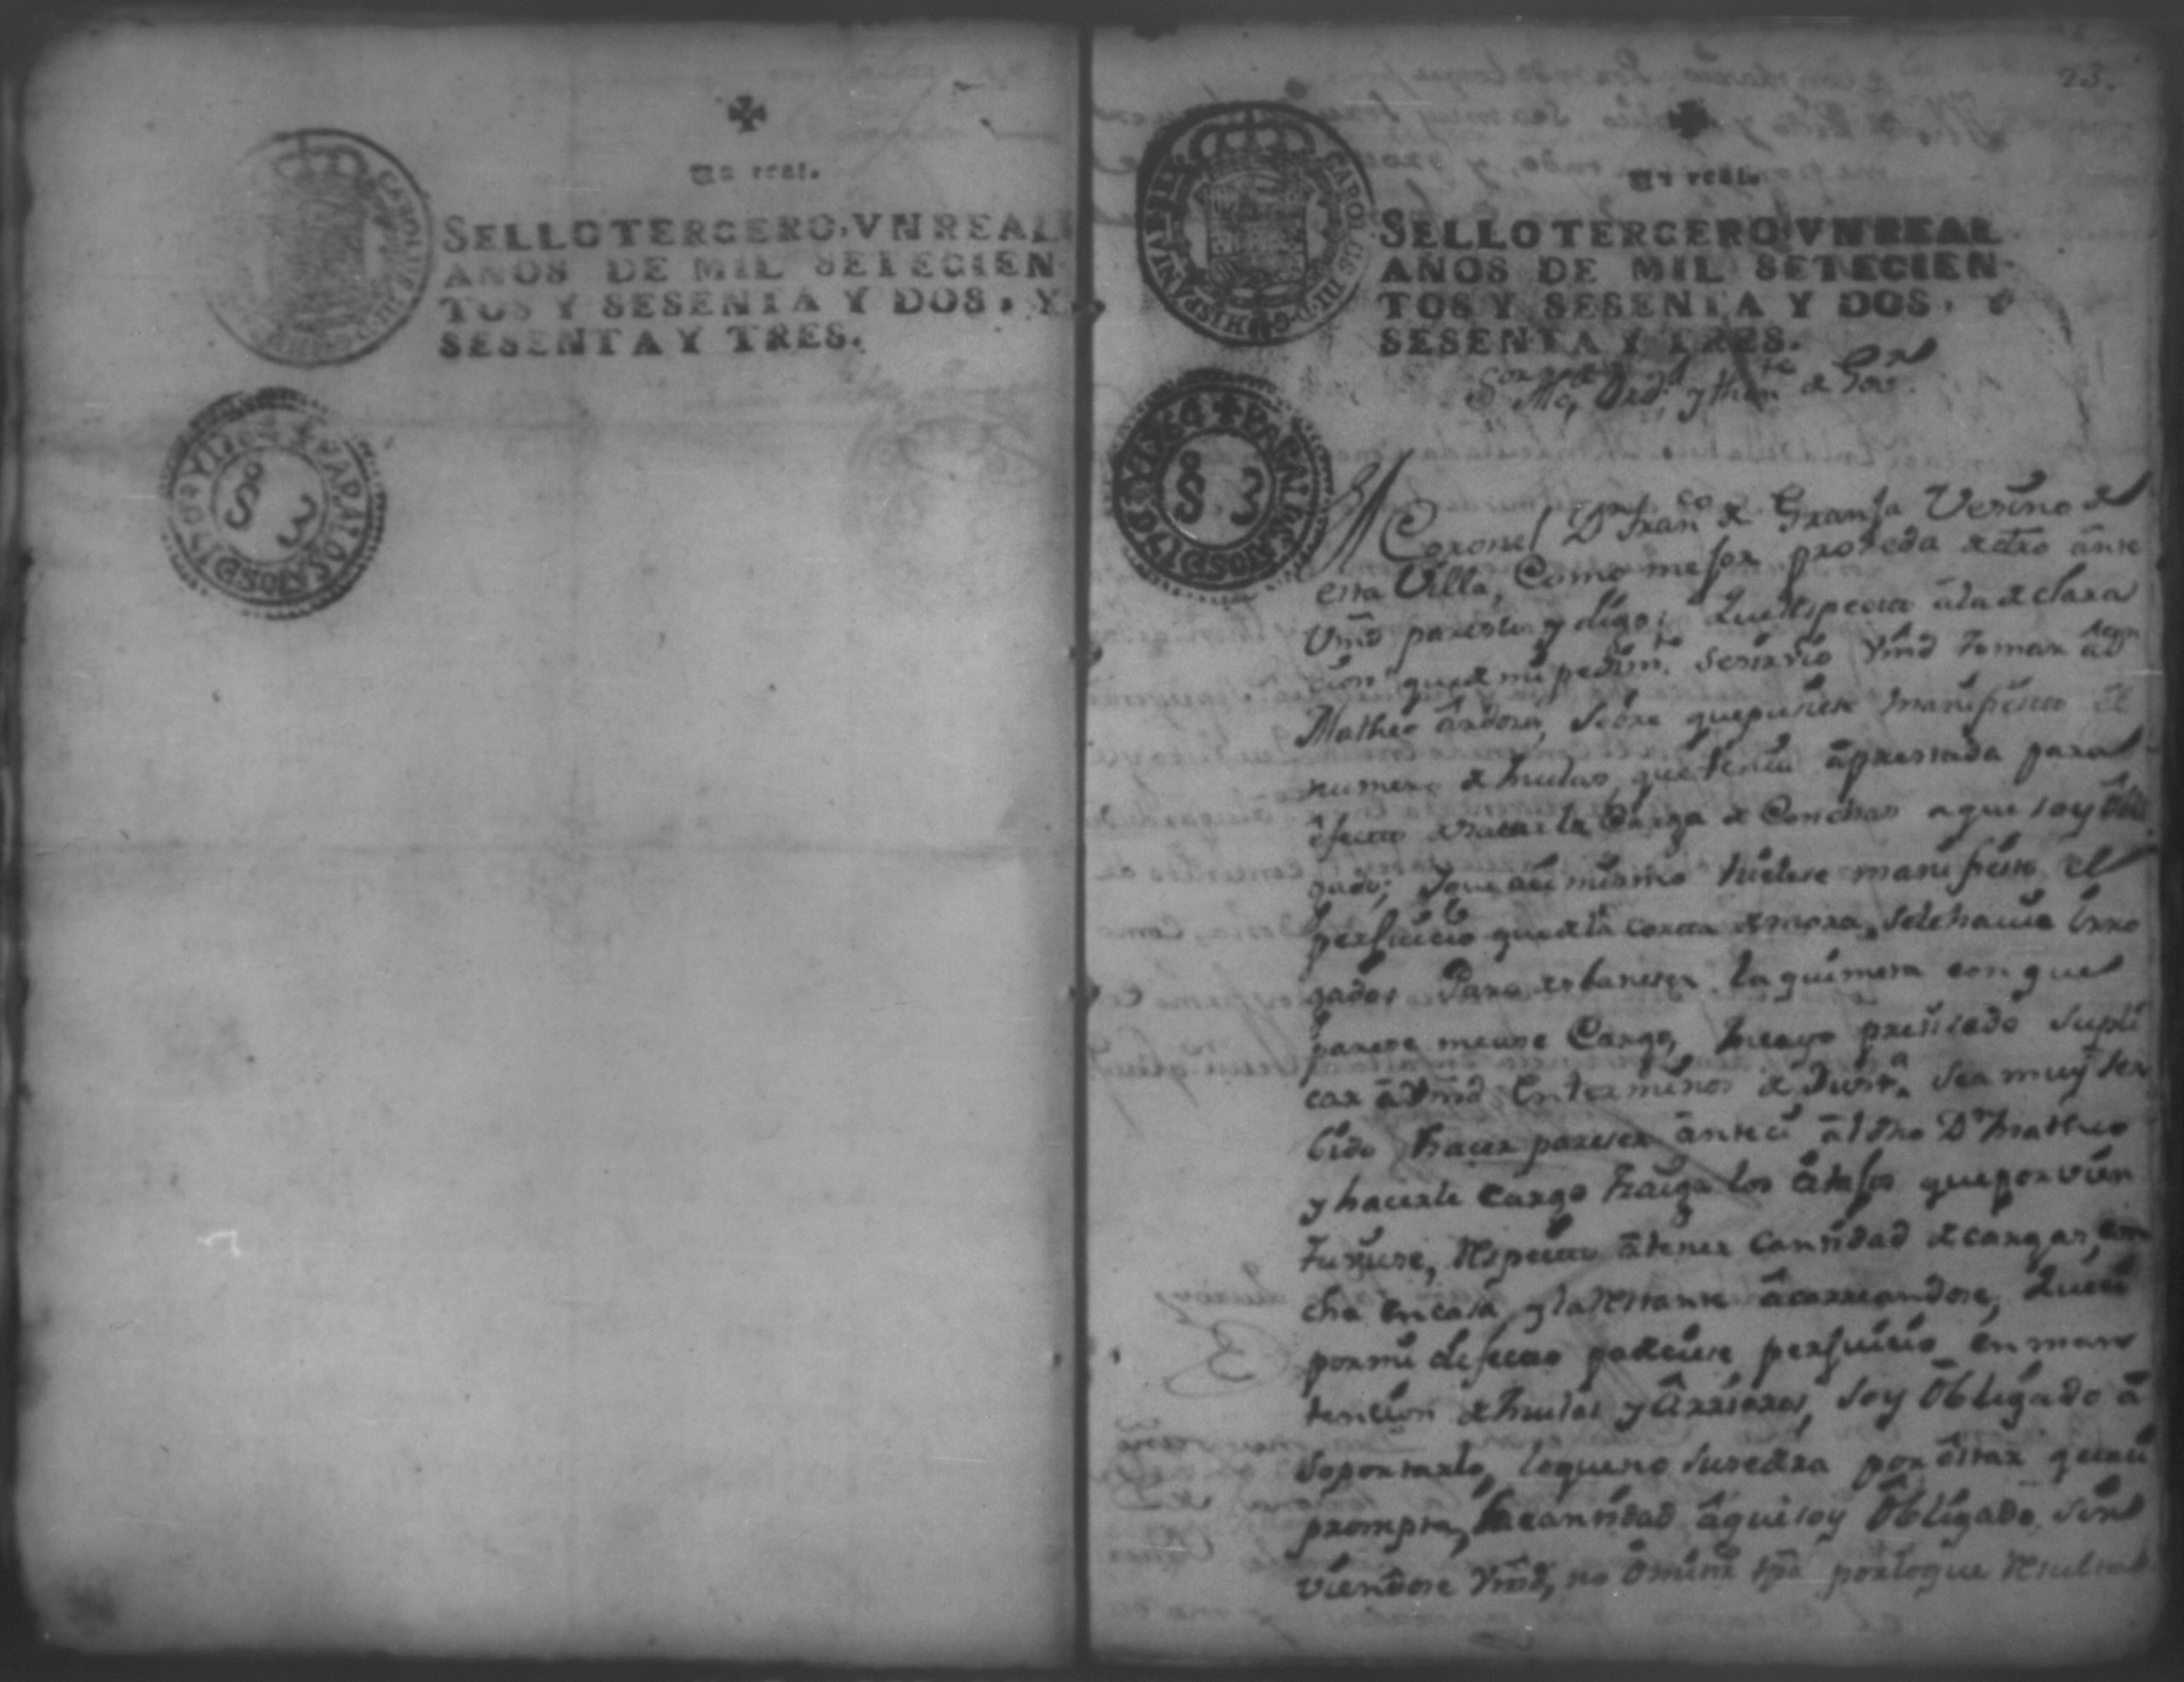 Un real.
SELLO TERCERO, VN REAL
AÑOS DE MIL SETECIEN
TOS Y SESENTA Y DOS, Y
SESENTA Y TRES.
CAROLUS III
PARA LOS AÑOS D 1764 Y
S 3
23.
Un real.
SELLO TERCERO VN REAL
AÑOS DE MIL SETECIEN-
TOS Y SESENTA Y DOS, Y
SESENTA Y TRES.
CAROLUS III D G HISPANIAR
PARA LOS AÑOS D 1764 Y
S 3
Sor Alc Ordo y thente de Gov
El Coronel Dn Franco de Granja Vesino de
esta Villa, Como mejor proseda de dro ante
Vmd paresco y digo; Que respecto a la declara
cion que de mi pedimto se sirvio Vmd tomar a Dn
Matheo sobre que pusiese manifiesto el
numero de mulas que tenia aprestada para el
efecto sacar la Carga de Conchas a que soy obli
gado; y que asi mismo hisiese manifiesto el
perjuicio que de la corta demora, se le havia irro
gado; Para desbaneser la quimera con que
parese me hase Cargo, he sido presisado supli
car a Vmd en terminos de Justa sea muy ser
bido haser pareser ante si al dho Dn Matheo
y haserle cargo traiga los que por vien
tuviere, respecto a tener cantidad de cargas, en
cha en casa y la restante acarreandose, que si
por mi defecto padeciese perjuicio en man
tencion de mulas y Arrieros, soy obligado a
soportarlo, lo que no susedera por estar quasi
prompta, la cantidad a qui soy obligado sir
viendose Vmd, no omitir tpo por lo que resulta